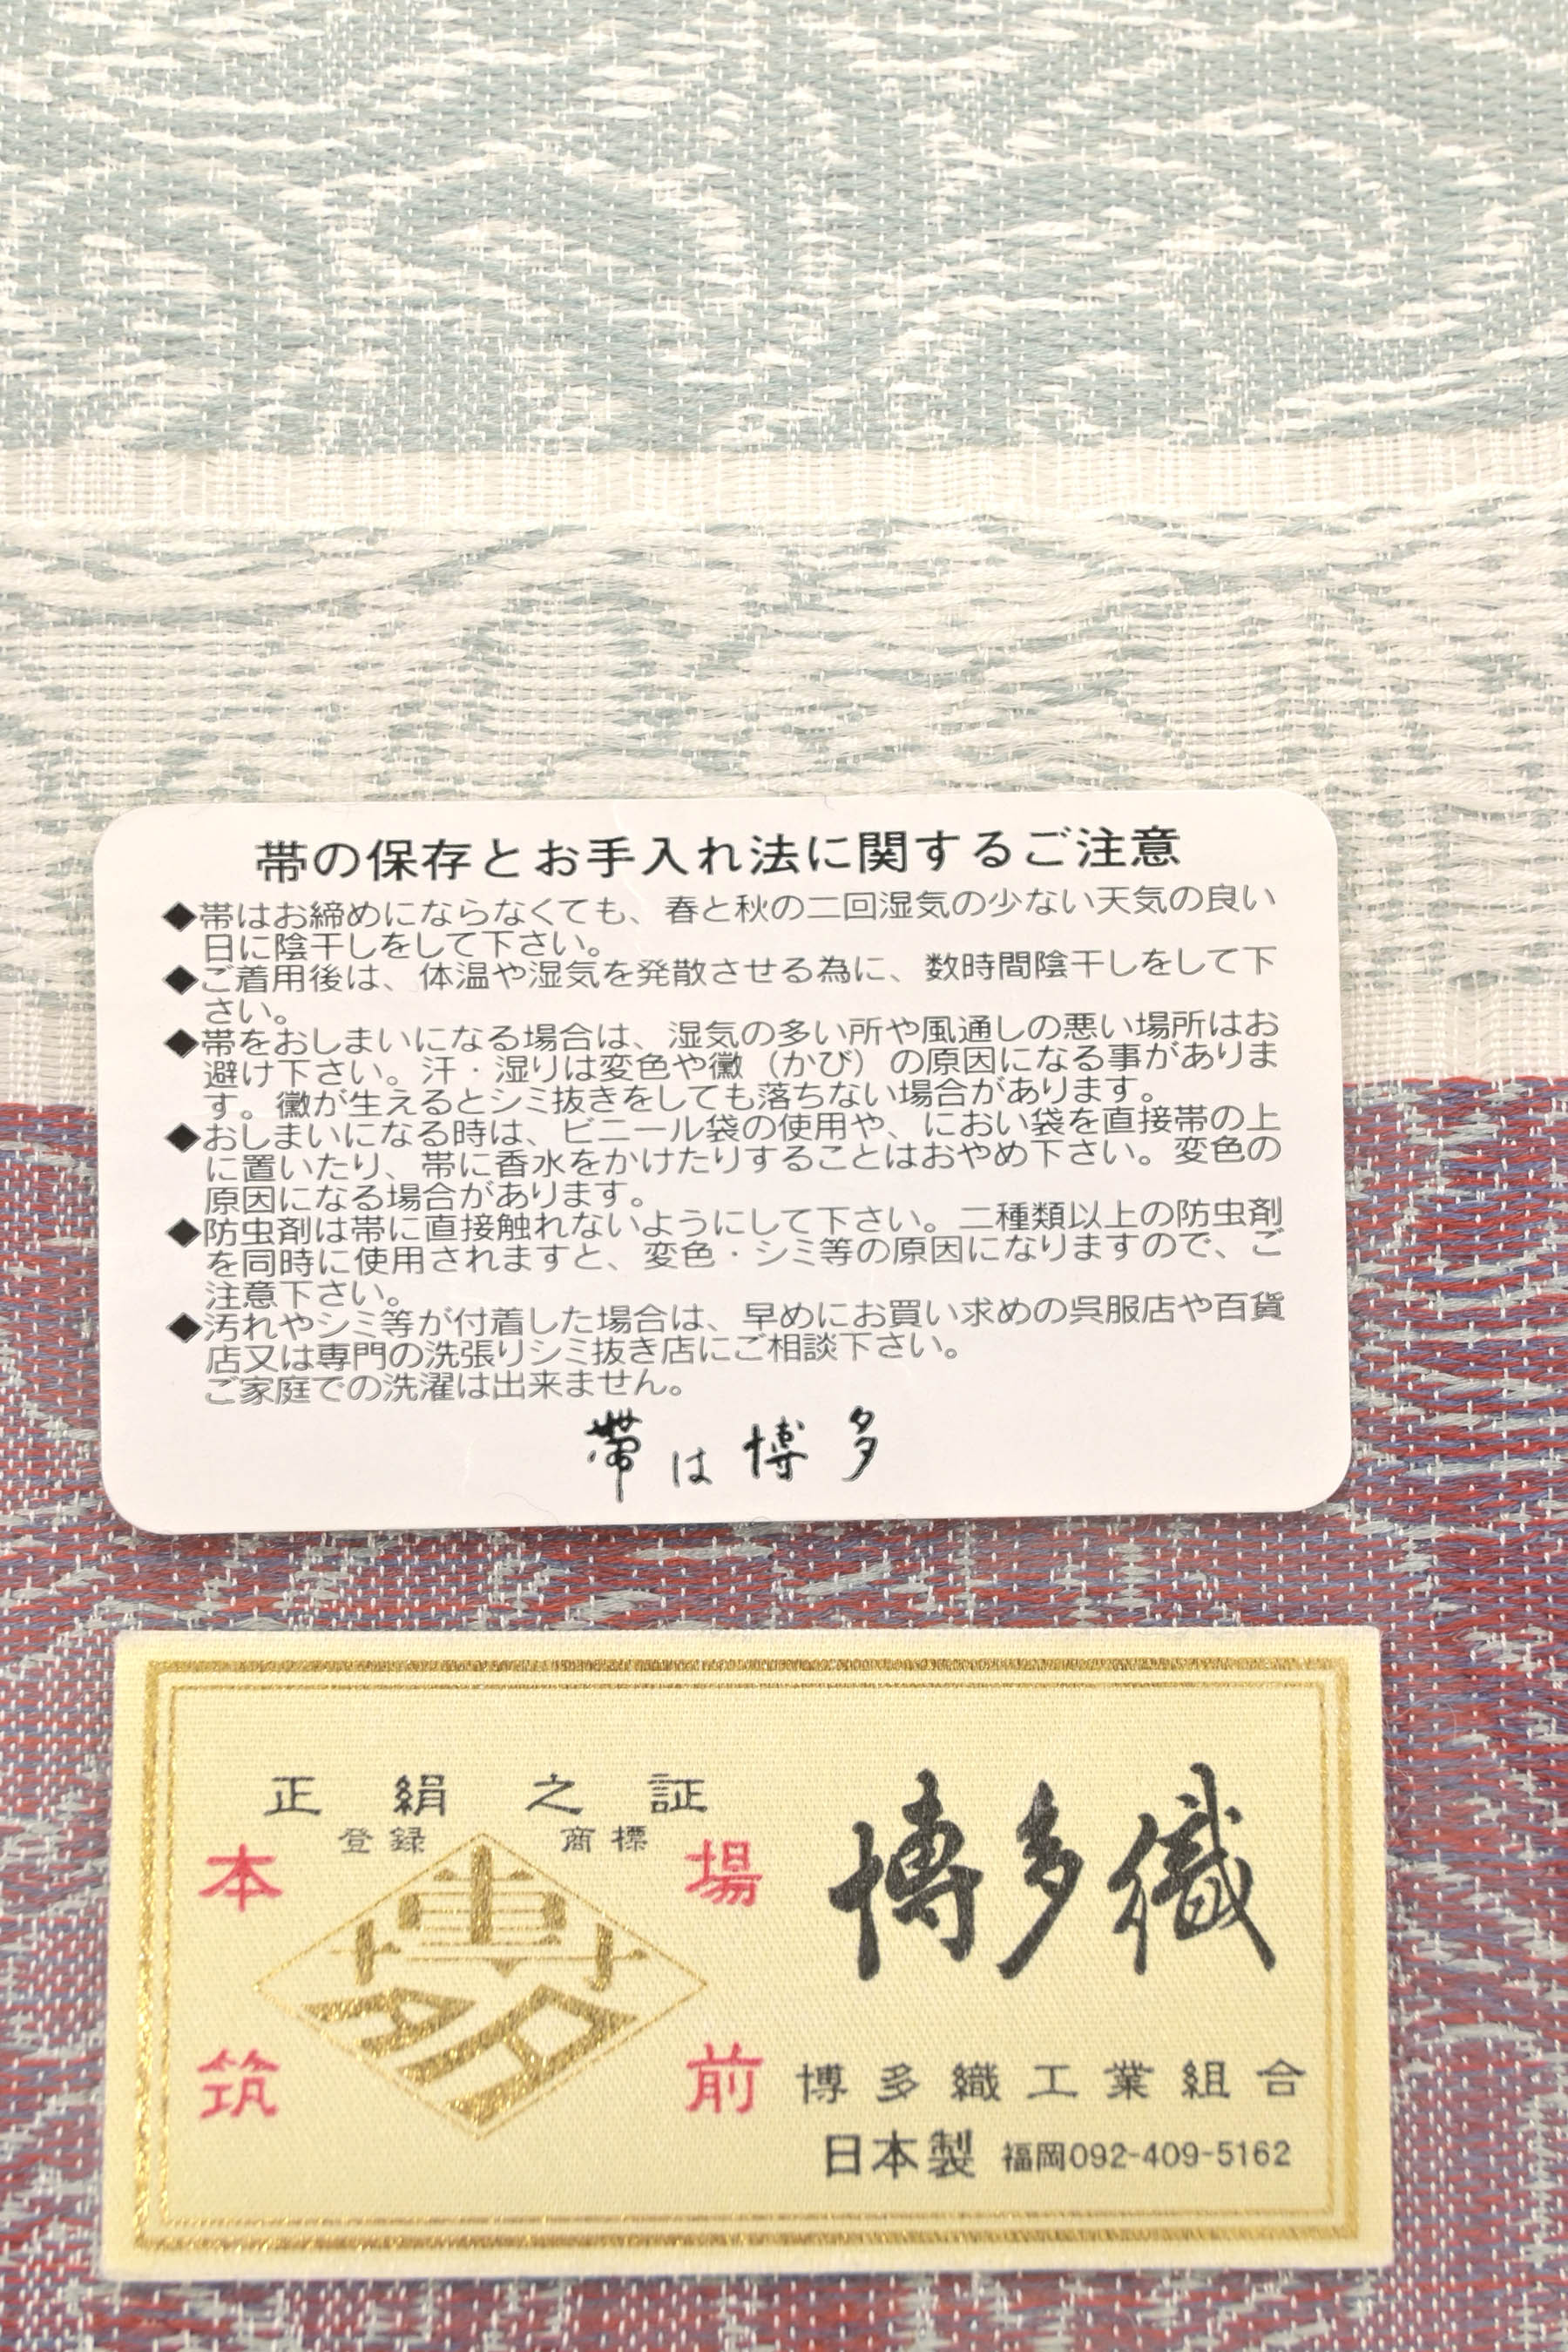 帯の保存とお手入れ法に関するご注意
◆帯はお締めにならなくても、春と秋の二回湿気の少ない天気の良い
日に陰干しをして下さい。
◆ご着用後は、体温や湿気を発散させる為に、数時間陰干しをして下
さい。
◆帯をおしまいになる場合は、湿気の多い所や風通しの悪い場所はお
避け下さい。汗・湿りは変色や黴（かび）の原因になる事がありま
す。黴が生えるとシミ抜きをしても落ちない場合があります。
◆おしまいになる時は、ビニール袋の使用や、におい袋を直接帯の上
に置いたり、帯に香水をかけたりすることはおやめ下さい。変色の
原因になる場合があります。
◆防虫剤は帯に直接触れないようにして下さい。二種類以上の防虫剤
を同時に使用されますと、変色・シミ等の原因になりますので、ご
注意下さい。
◆汚れやシミ等が付着した場合は、早めにお買い求めの呉服店や百貨
店又は専門の洗張りシミ抜き店にご相談下さい。
ご家庭での洗濯は出来ません。
帯は博多
正絹之証
登録 商標
本場
筑前
博多
博多織
博多織工業組合
日本製 福岡092-409-5162